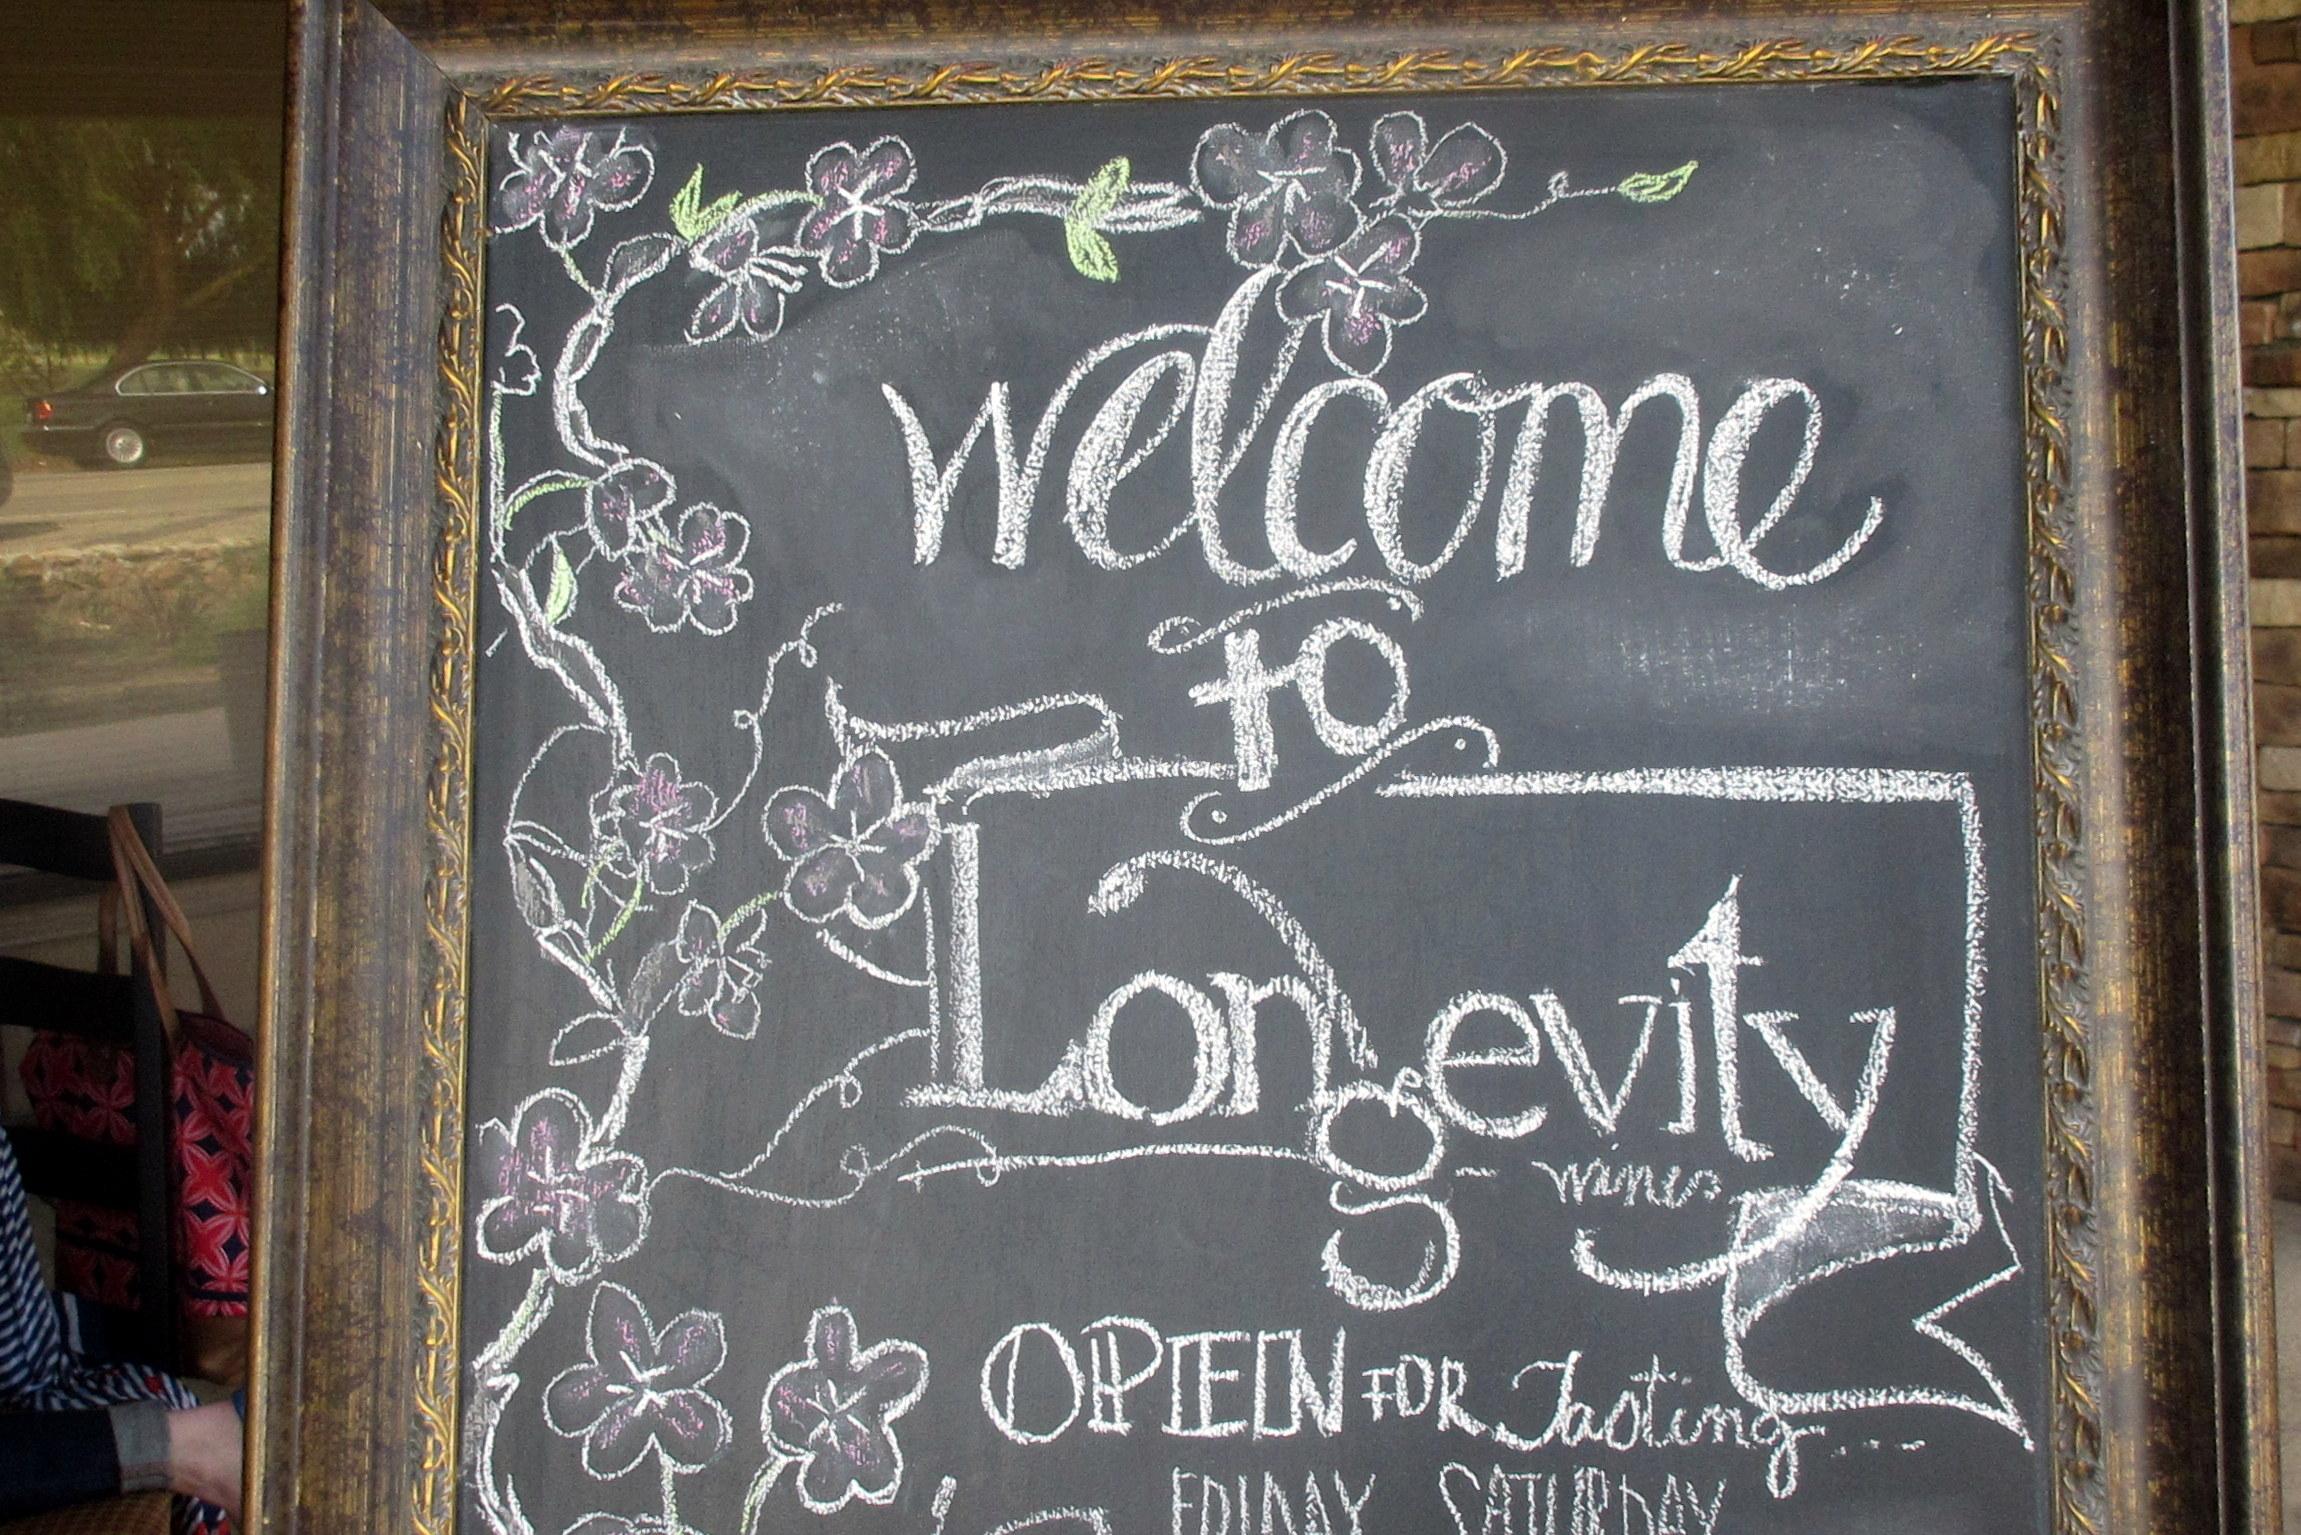 welcome
to
Longevity
wines
OPEN FOR Tasting...
FRIDAY SATURDAY